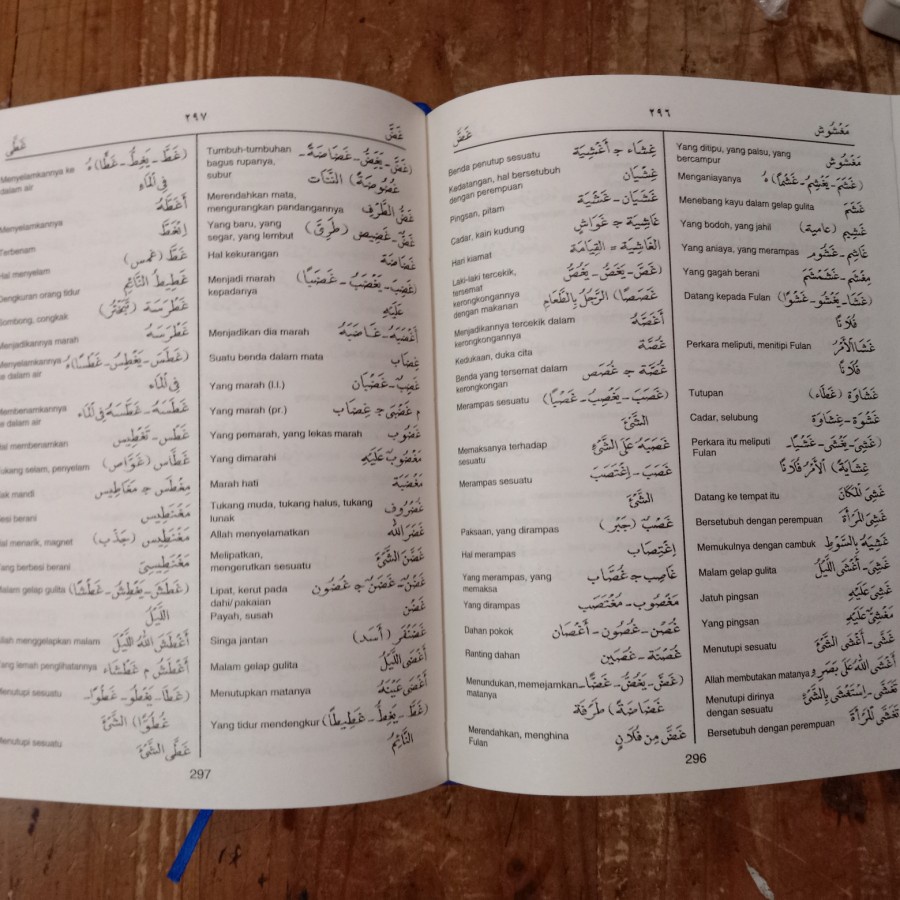 ٢٩٦
مَغْشُوش
غَضَّ
Yang ditipu, yang palsu, yang
bercampur مَغْشُوش
Menganiayanya (غَشَمَ - يَغْشِمُ - غَشْمًا) ـهُ
Menebang kayu dalam gelap gulita غَشَمَ
Yang bodoh, yang jahil غَشِيم (عامية)
Yang aniaya, yang merampas غَاشِم - غَشُوم
Yang gagah berani مِغْشَم - غَشَمْشَم
Datang kepada Fulan (غَشَا - يَغْشُو - غَشْوًا)
فُلَانًا
Perkara meliputi, menitipi Fulan غَشَا الأَمْرُ
فُلَانًا
Tutupan غَشَاوَة (غِطَاء)
Cadar, selubung غَشْوَة - غِشَاوَة
Perkara itu meliputi (غَشِيَ - يَغْشَى - غَشْيًا -
Fulan غِشَايَةً) الأَمْرُ فُلَانًا
Datang ke tempat itu غَشِيَ المَكَانَ
Bersetubuh dengan perempuan غَشِيَ المَرْأَةَ
Memukulnya dengan cambuk غَشِيَهُ بِالسَّوْطِ
Malam gelap gulita غَشِيَ - أَغْشَى اللَّيْلُ
Jatuh pingsan غُشِيَ عَلَيْهِ
Yang pingsan مَغْشِيٌّ عَلَيْهِ
Menutupi sesuatu غَشَّى - أَغْشَى الشَّيْءَ
Allah membutakan matanya أَغْشَى اللهُ عَلَى بَصَرِهِ
Menutupi dirinya
dengan sesuatu تَغَشَّى - اِسْتَغْشَى بِالشَّيْءِ
Bersetubuh dengan perempuan تَغَشَّى المَرْأَةَ
Benda penutup sesuatu غِشَاء ج أَغْشِيَة
Kedatangan, hal bersetubuh
dengan perempuan غِشْيَان
Pingsan, pitam غَشَيَان - غَشْيَة
Cadar, kain kudung غَاشِيَة ج غَوَاشٍ
Hari kiamat الغَاشِيَة = القِيَامَة
Laki-laki tercekik, (غَصَّ - يَغَصُّ - يَغُصُّ
tersemat
kerongkongannya غَصَصًا) الرَّجُلُ بِالطَّعَامِ
dengan makanan
Menjadikannya tercekik dalam
kerongkongannya أَغَصَّهُ
Kedukaan, duka cita غُصَّة
Benda yang tersemat dalam
kerongkongan غُصَّة ج غُصَص
Merampas sesuatu (غَصَبَ - يَغْصِبُ - غَصْبًا)
الشَّيْءَ
Memaksanya terhadap
sesuatu غَصَبَهُ عَلَى الشَّيْءِ
Merampas sesuatu غَصَبَ - اِغْتَصَبَ
الشَّيْءَ
Paksaan, yang dirampas غَصْب (جَبْر)
Hal merampas اِغْتِصَاب
Yang merampas, yang
memaksa غَاصِب ج غُصَّاب
Yang dirampas مَغْصُوب - مُغْتَصَب
Dahan pokok غُصْن - غُصُون - أَغْصَان
Ranting dahan غُصْنَة - غُصَيْن
Menundukan, memejamkan (غَضَّ - يَغُضُّ - غَضًّا -
matanya غَضَاضَةً) طَرْفَهُ
Merendahkan, menghina
Fulan غَضَّ مِن فُلَانٍ
296
٢٩٧
غَضَّ
غَطَّى
Tumbuh-tumbuhan (غَضَّ - يَغَضُّ - غَضَاضَةً -
bagus rupanya,
subur غُضُوضَةً) النَّبَات
Merendahkan mata,
mengurangkan pandangannya غَضَّ الطَّرْفَ
Yang baru, yang
segar, yang lembut غَضّ - غَضِيض (طَرِيّ)
Hal kekurangan غَضَاضَة
Menjadi marah (غَضِبَ - يَغْضَبُ - غَضَبًا)
kepadanya عَلَيْهِ
Menjadikan dia marah أَغْضَبَهُ - غَاضَبَهُ
Suatu benda dalam mata غِضَاب
Yang marah (l.l.) غَضِبٌ - غَضْبَان
Yang marah (pr.) م غَضْبَى ج غِضَاب
Yang pemarah, yang lekas marah غَضُوب
Yang dimarahi مَغْضُوب عَلَيْهِ
Marah hati مَغْضَبَة
Tukang muda, tukang halus, tukang
lunak غُضْرُوف
Allah menyelamatkan غَضَرَ اللهُ
Melipatkan,
mengerutkan sesuatu غَضَّنَ الشَّيْءَ
Lipat, kerut pada
dahi/pakaian غَضْن - غَضَن ج غُضُون
Payah, susah غَضْن
Singa jantan غَضَنْفَر (أَسَد)
Malam gelap gulita أَغْضَى اللَّيْلُ
Menutupkan matanya أَغْضَى عَيْنَهُ
Yang tidur mendengkur (غَطَّ - يَغِطُّ - غَطِيطًا)
النَّائِمُ
Menyelamkannya ke (غَطَّ - يَغِطُّ - غَطًّا) ـهُ
dalam air فِي المَاءِ
Menyelamkannya أَغَطَّهُ
Terbenam اِنْغَطَّ
Hal menyelam غَطّ (غَمْس)
Dengkuran orang tidur غَطِيطُ النَّائِمِ
Sombong, congkak غَطْرَسَة (تَبَخْتُر)
Menjadikannya marah غَطْرَسَهُ
Menyelamkannya (غَطَسَ - يَغْطِسُ - غَطْسًا) ـهُ
ke dalam air فِي المَاءِ
Membenamkannya
ke dalam air غَطَّسَهُ - غَطَسَهُ فِي المَاءِ
Hal membenamkan غَطْس - تَغْطِيس
Tukang selam, penyelam غَطَّاس (غَوَّاص)
Bak mandi مِغْطَس ج مَغَاطِيس
Besi berani مَغْنَطِيس
Hal menarik, magnet مَغْنَطِيس (جَذْب)
Yang berbesi berani مَغْنَطِيسِيّ
Malam gelap gulita (غَطَشَ - يَغْطِشُ - غَطْشًا)
اللَّيْلُ
Allah menggelapkan malam أَغْطَشَ اللهُ اللَّيْلَ
Yang lemah penglihatannya أَغْطَش م غَطْشَاء
Menutupi sesuatu (غَطَا - يَغْطُو - غَطْوًا -
غُطُوًّا) الشَّيْءَ
Menutupi sesuatu غَطَّى الشَّيْءَ
297